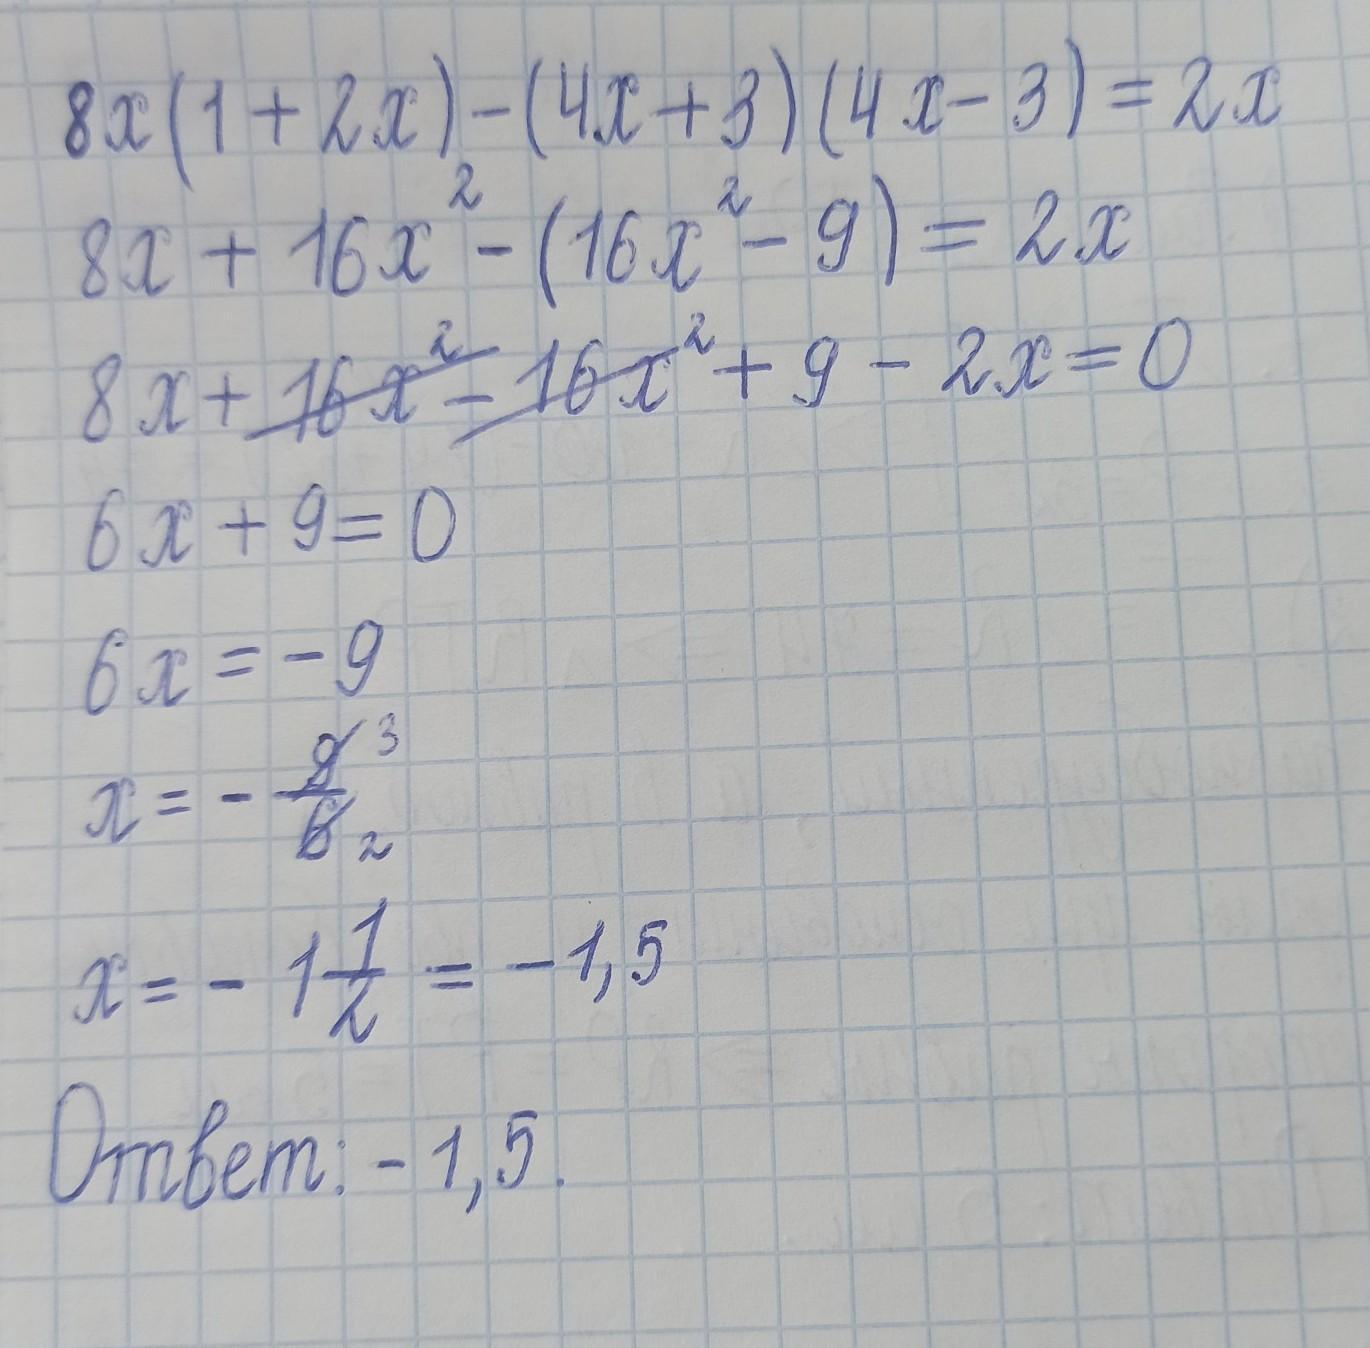 8x(1+2x)-(4x+3)(4x-3)=2x
8x+16x²-(16x²-9)=2x
8x+16x²-16x²+9-2x=0
6x+9=0
6x=-9
x=-9/6 3 2
x=-1 1/2=-1,5
Ответ: -1,5.